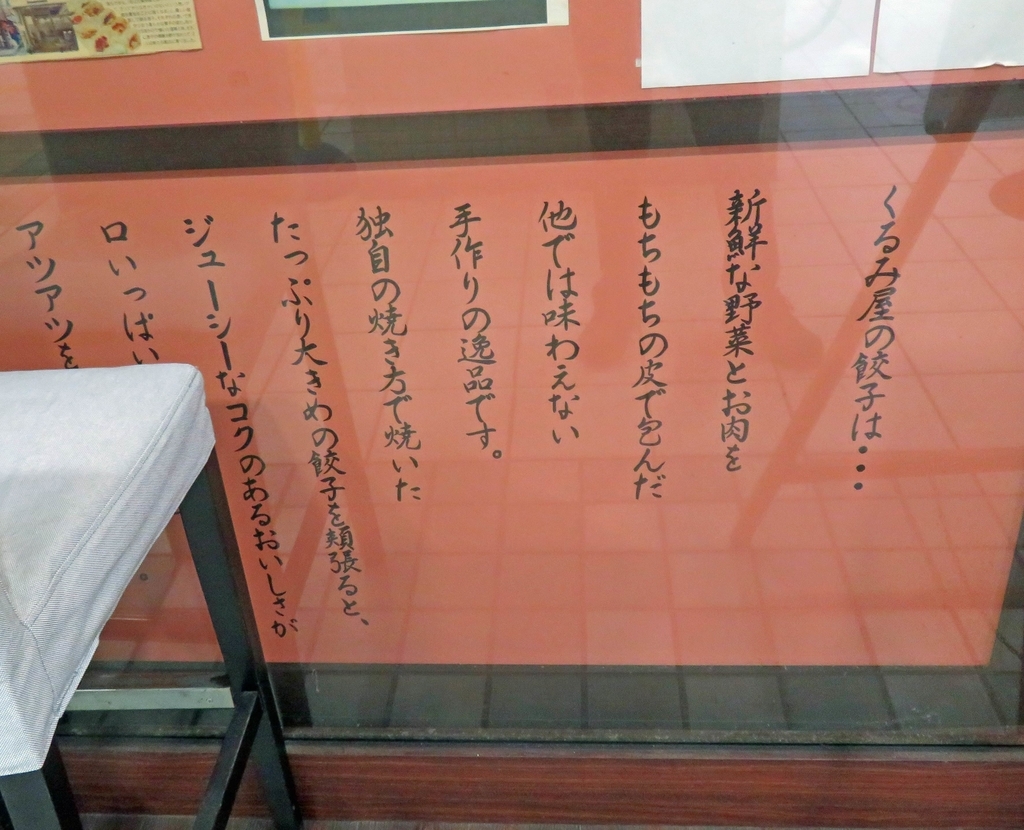 くるみ屋の餃子は・・・
新鮮な野菜とお肉を
もちもちの皮で包んだ
他では味わえない
手作りの逸品です。
独自の焼き方で焼いた
たっぷり大きめの餃子を頬張ると、
ジューシーなコクのあるおいしさが
口いっぱい
アツアツを